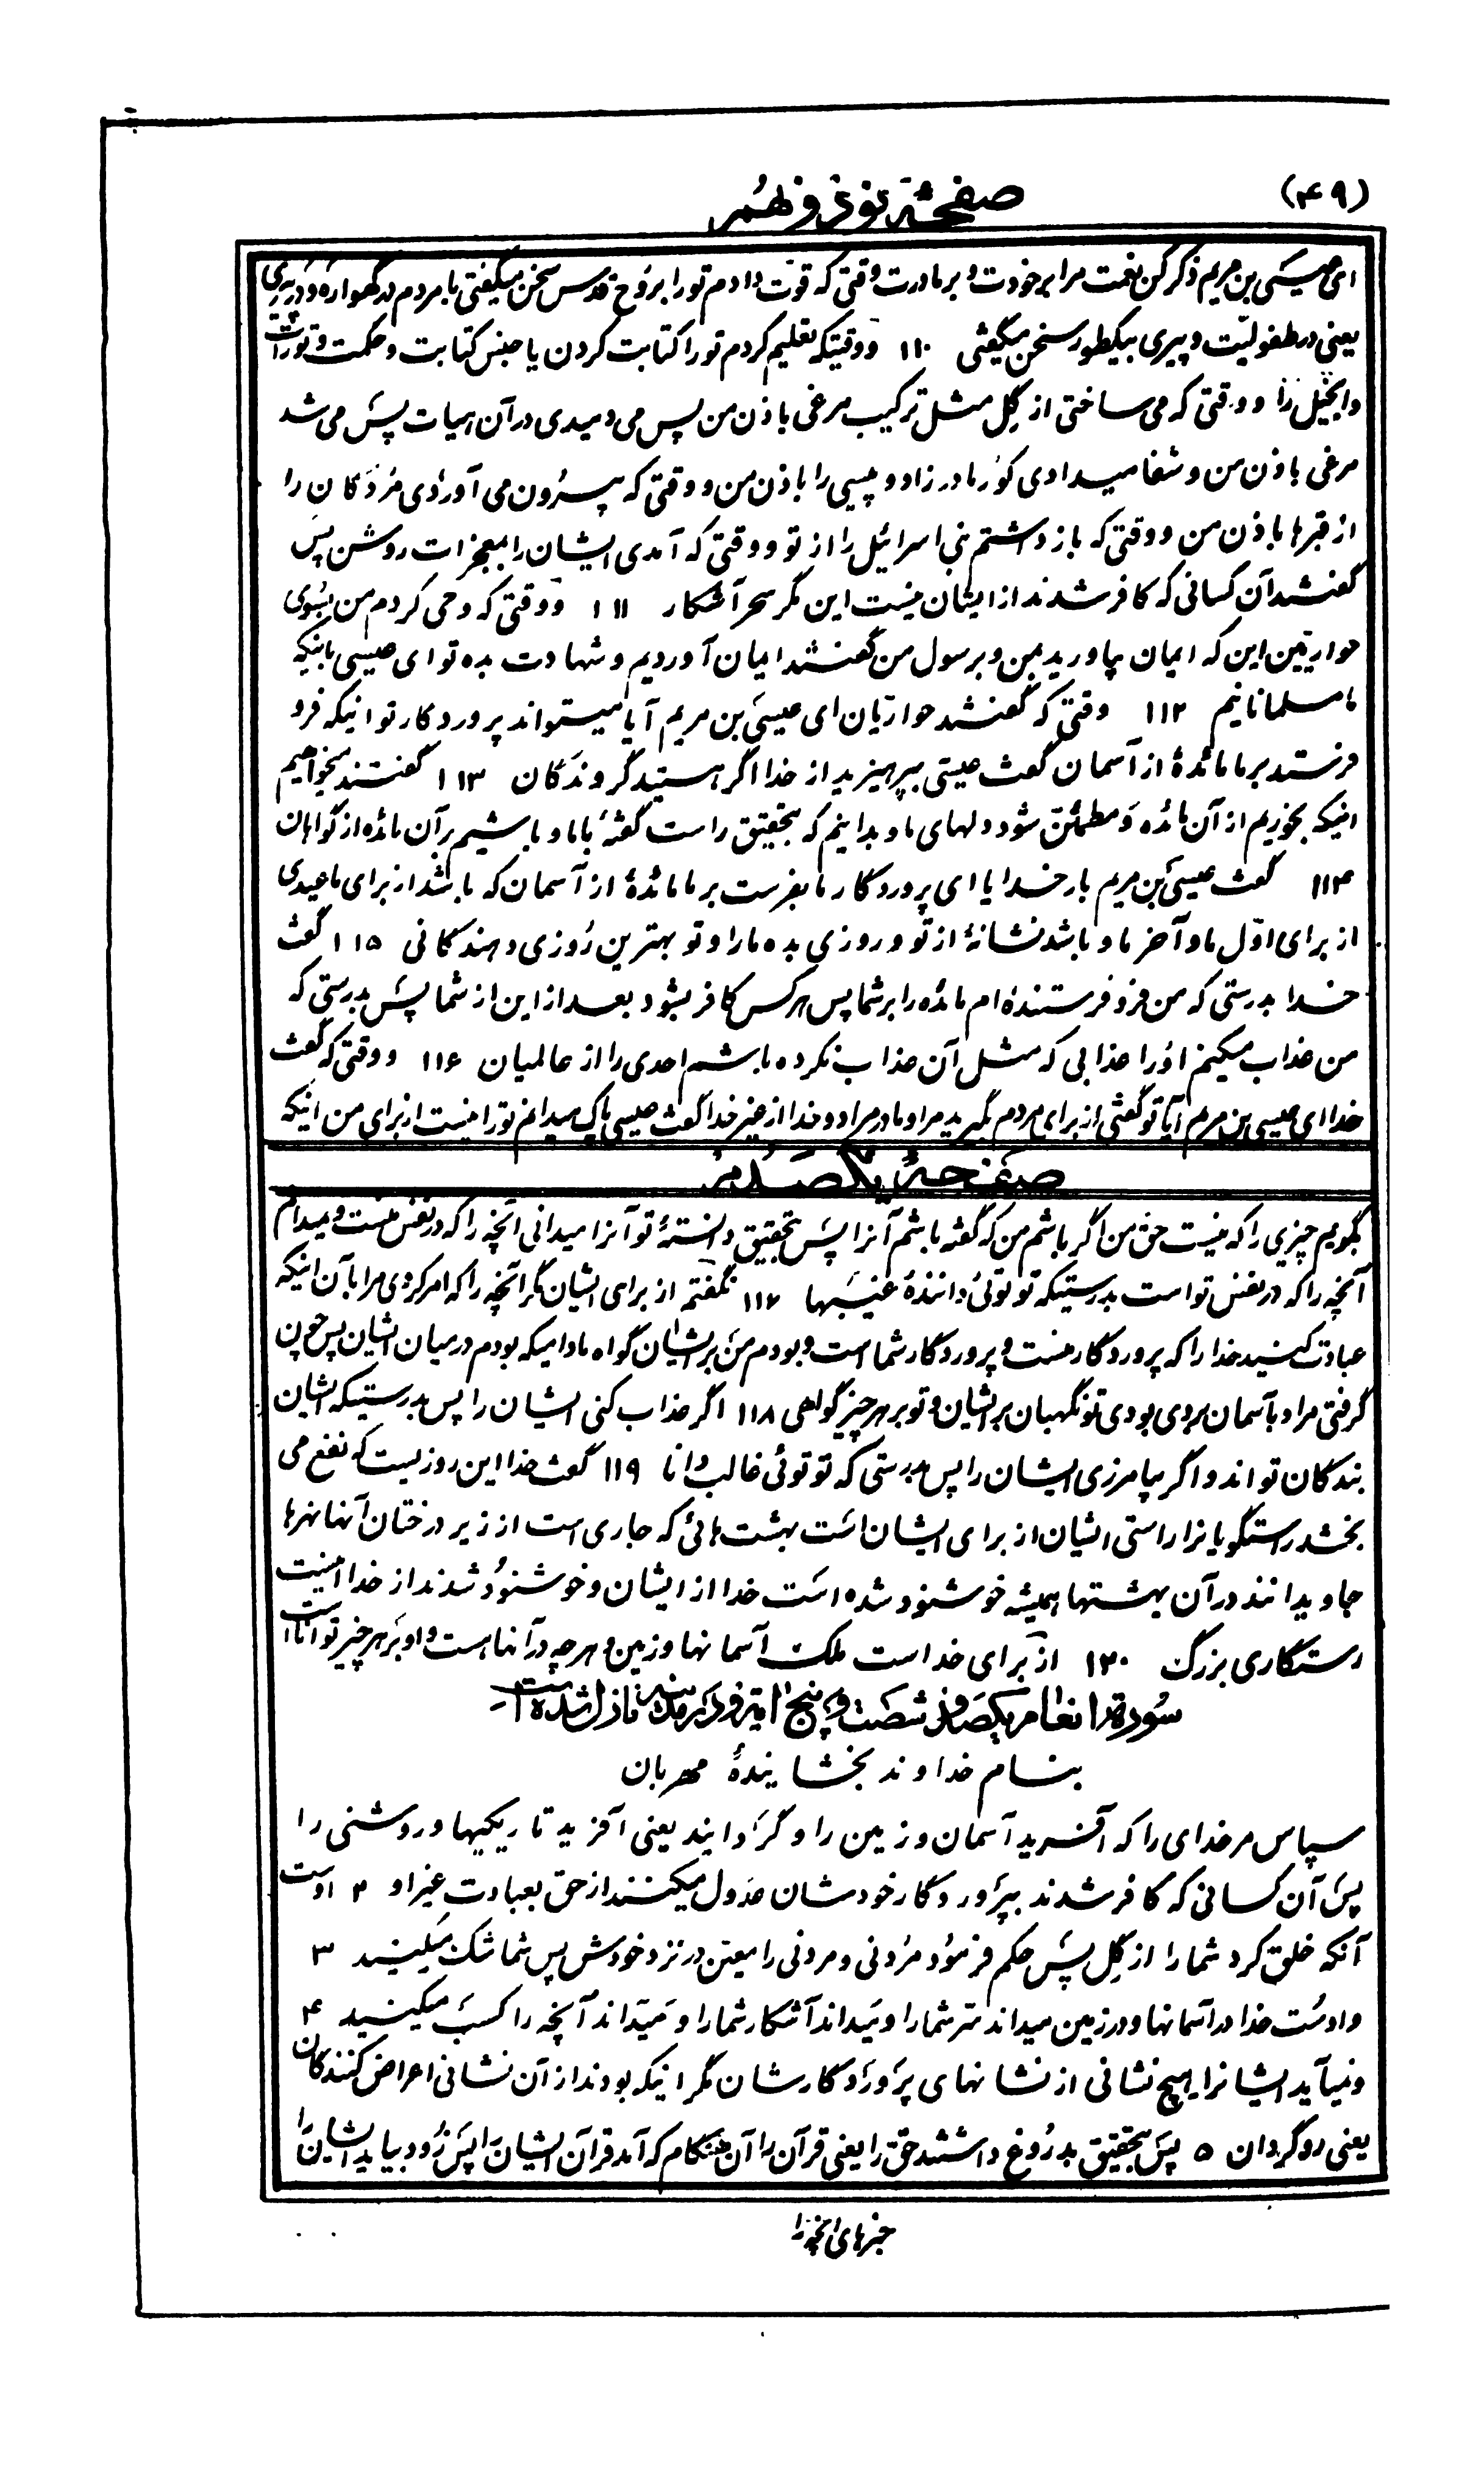 (۴۹)
صفحهٔ نود و نهم
ای عیسی بن مریم ذکر کن نعمت مرا بر خودت و بر مادرت وقتی که قوّت دادم تو را بروح قدس سخن میگفتی با مردم در گهواره و در پیری
یعنی در طفولیّت و پیری بیکطور سخن میگفتی ۱۱۰ و وقتیکه تعلیم کردم تو را کتابت کردن یا جنس کتابت و حکمت و تورات
و انجیل را و وقتی که می ساختی از گِل مثل ترکیب مرغی باذن من پس می دمیدی در آن هیات پس می شد
مرغی باذن من و شفا میدادی کور مادر زاد و پیسی را باذن من و وقتی که بیرون می آوردی مردکان را
از قبرها باذن من و وقتی که باز داشتم بنی اسرائیل را از تو و وقتی که آمدی ایشان را بمعجزات روشن پس
گفتند آن کسانی که کافر شدند از ایشان نیست این مگر سحر آشکار ۱۱۱ و وقتی که وحی کردم من بسوی
حواریّین این که ایمان بیاورید بمن و برسول من گفتند ایمان آوردیم و شهادت بده تو ای عیسی باینکه
ما مسلمانانیم ۱۱۲ وقتی که گفتند حواریّان ای عیسی بن مریم آیا میتواند پروردکار تو اینکه فرو
فرستد بر ما مائدهٔ از آسمان گفت عیسی بپرهیزید از خدا اگر هستید گروندکان ۱۱۳ گفتند میخواهیم
اینکه بخوریم از آن مائده و مطمئن شود دلهای ما و بدانیم که بتحقیق راست گفتهٔ باما و باشیم بر آن مائده از گواهان
۱۱۴ گفت عیسی بن مریم بار خدایا ای پروردگار ما بفرست بر ما مائدهٔ از آسمان که باشد از برای ما عیدی
از برای اوّل ما و آخر ما و باشد نشانهٔ از تو و روزی بده ما را و تو بهترین روزی دهندکانی ۱۱۵ گفت
خدا بدرستی که من فرو فرستندهٔ ام مائده را بر شما پس هر کس کافر بشود بعد از این از شما پس بدرستی که
من عذاب میکنم او را عذابی که مثل آن عذاب نکرده باشم احدی را از عالمیان ۱۱۶ و وقتی که گفت
خدا ای عیسی بن مریم آیا تو گفتی از برای مردم بگیرید مرا و مادر مرا دو خدا از غیر خدا گفت عیسی پاک میدانم تو را نیست از برای من اینکه
صفحهٔ یکصدم
بگویم چیزی را که نیست حق من اگر باشم من که گفته باشم آنرا پس بتحقیق دانستهٔ تو آنرا میدانی آنچه را که در نفس منست و نمیدانم
آنچه را که در نفس تو است بدرستیکه تو توئی دانندهٔ غیبها ۱۱۷ نگفتم از برای ایشان مگر آنچه را که امر کردی مرا بآن اینکه
عبادت کنید خدا را که پروردگار منست و پروردگار شما است و بودم من بر ایشان گواه مادامیکه بودم در میان ایشان پس چون
گرفتی مرا و بآسمان بردی بودی تو نگهبان بر ایشان و تو بر هر چیز گواهی ۱۱۸ اگر عذاب کنی ایشان را پس بدرستیکه ایشان
بندکان تو اند و اگر بیامرزی ایشان را پس بدرستی که تو توئی غالب دانا ۱۱۹ گفت خدا این روزیست که نفع می
بخشد راستگویانرا راستی ایشان از برای ایشان است بهشت هائی که جاری است از زیر درختان آنها نهرها
جاویدانند در آن بهشتها همیشه خوشنود شده است خدا از ایشان و خوشنود شدند از خدا اینست
رستکاری بزرگ ۱۲۰ از برای خداست ملک آسمانها و زمین و هرچه در آنهاست و او بر هر چیز تواناست
سوره انعام یکصد و شصت و پنج آیه و در مکه نازل شده است
بنام خداوند بخشایندهٔ مهربان
سپاس مر خدای را که آفرید آسمان و زمین را و گردانید یعنی آفرید تاریکیها و روشنی را
پس آن کسانی که کافر شدند بپروردکار خودشان عدول میکنند از حق بعبادت غیر او ۲ اوست
آنکه خلق کرد شما را از گِل پس حکم فرمود مردنی و مردنی را معیّن در نزد خودش پس شما شک میکنید ۳
و اوست خدا در آسمانها و در زمین میداند سرّ شما را و میداند آشکار شما را و میداند آنچه را کسب میکنید ۴
و نمیآید ایشانرا هیچ نشانی از نشانهای پروردکارشان مگر اینکه بودند از آن نشانی اعراض کنندکان
یعنی روگردان ۵ پس بتحقیق بدروغ داشتند حق را یعنی قرآن را آن هنکام که آمد قرآن ایشان را پس زود بیاید ایشان را
خبرهای آنچه را